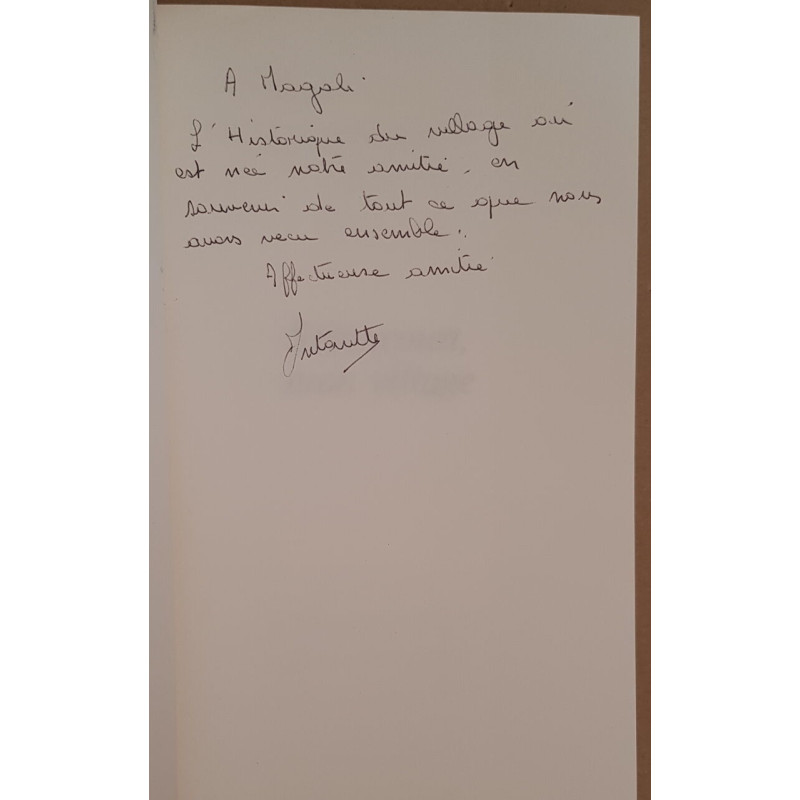 A Magali.
L'Historique du village où
est née notre amitié, en
souvenir de tout ce que nous
avons vécu ensemble.
Affectueuse amitié